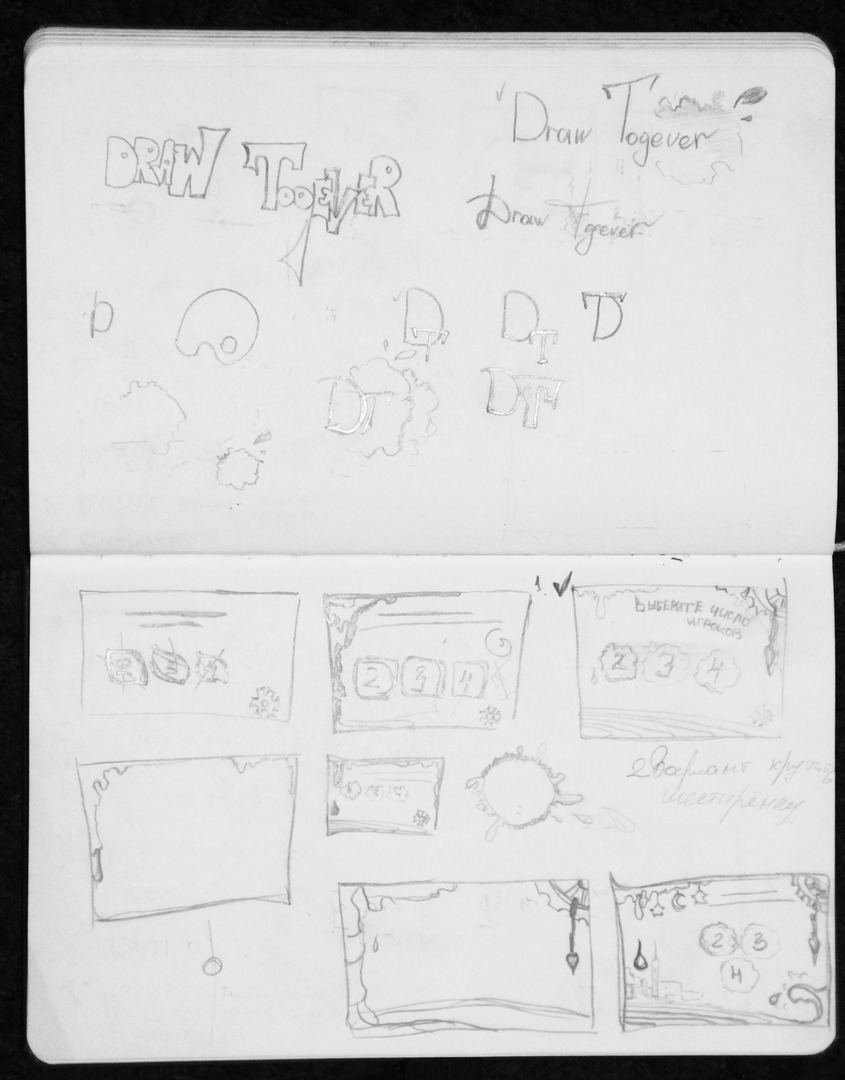 Draw Togever
DRAW TOGEVER
Draw Tgever
D
D T
D T
D T
DT
DT
1. ✓
ВЫБЕРИТЕ ЧИСЛО
ИГРОКОВ
2 3 4
2 3 4
2 Вариант
шестирёнку
2 3
4